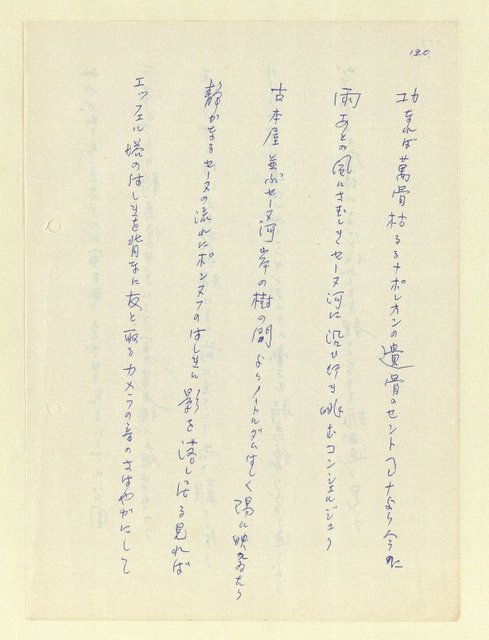 120
功なれば萬骨枯るるナポレオンの遺骨のセントヘレナより今に
雨あとの風にさむしきセーヌ河に沿ひ行き眺むコンシェルジェリ
古本屋並ぶセーヌ河岸の樹の間よりノートルダムはしく陽に映えゐたり
静かなるセーヌの流れにポンヌフのはしきに影を落し居る見れば
エッフェル塔のはしきを背なに友と取るカメラの音のさはやかにして